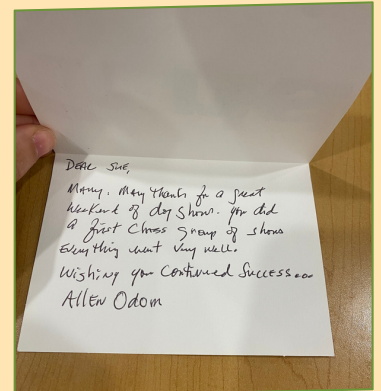 DEAR SUE,
Many, Many thanks for a great
weekend of dog shows. you did
a first class group of shows
Everything went very well.
Wishing you Continued Success...
Allen Odom